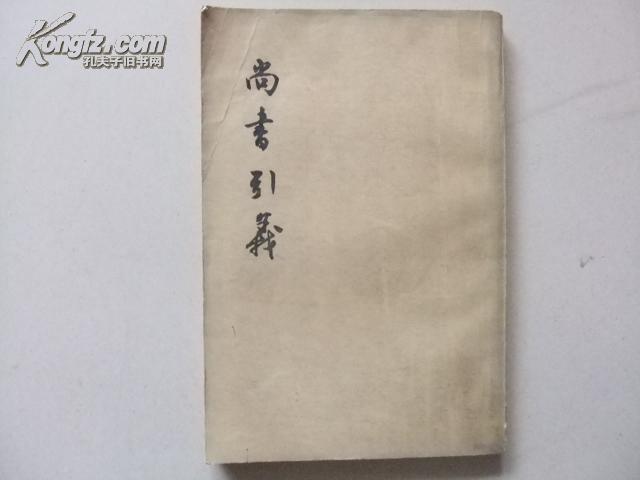 Kongfz.com
孔夫子旧书网
尚書引義